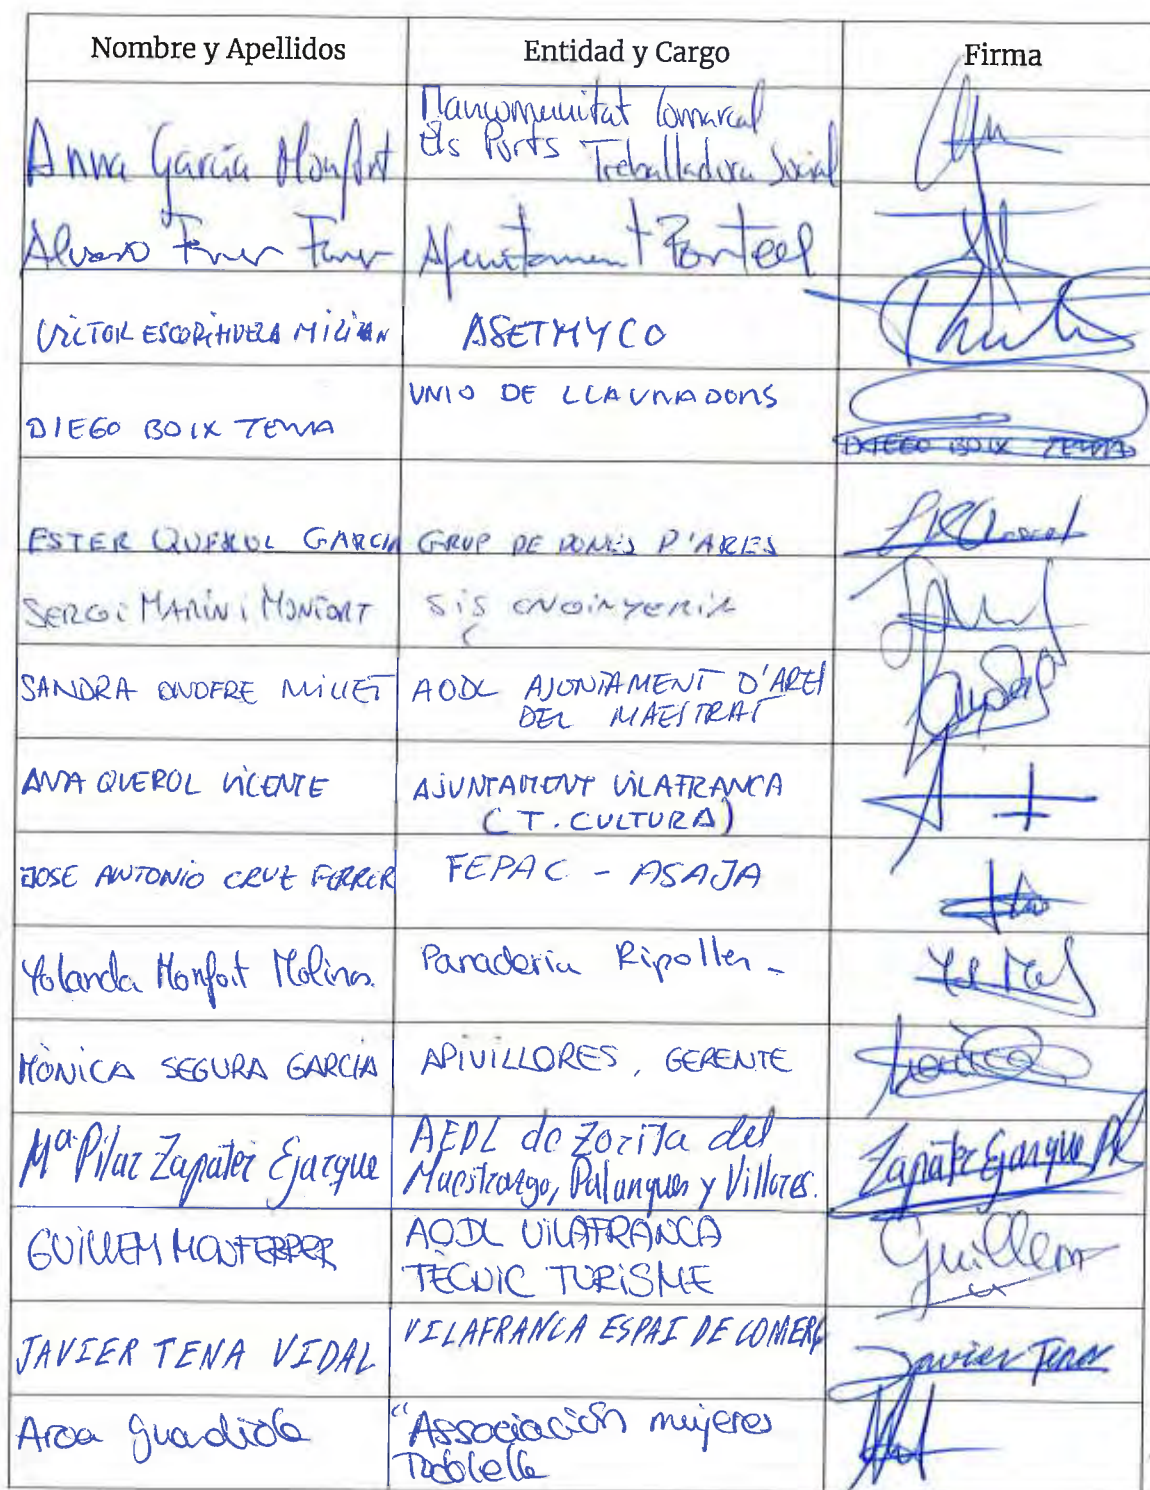 Nombre y Apellidos Entidad y Cargo Firma
Mancomunitat Comarcal
Anna García Monfort Els Ports Treballadora Social
Alvaro Ferrer Ferrer Ajuntament Portell
VICTOR ESCORIHUELA MILIAN ASETMYCO
UNIO DE LLAURADORS
DIEGO BOIX TENA
DIEGO BOIX TENA
ESTER QUEROL GARCIA GRUP DE DONES D'ARES
SERGi MARÍN i MONFORT SiS ENGINYERIA
SANDRA ONOFRE MILLET AODL AJUNTAMENT D'ARES
DEL MAESTRAT
ANA QUEROL VICENTE AJUNTAMENT VILAFRANCA
(T. CULTURA)
JOSE ANTONIO CRUZ FERRER FEPAC - ASAJA
Yolanda Monfort Molinos. Panaderia Ripolles -
MÒNICA SEGURA GARCIA APIVILLORES, GERENTE
AEDL de Zorita del
Mª Pilar Zapater Ejarque Maestrazgo, Palanques y Villores. Zapater Ejarque
GUILLEM MONFERRER AODL VILAFRANCA Guillem
TÈCNIC TURISME
JAVIER TENA VIDAL VILAFRANCA ESPAI DE COMERÇ Javier Tena
Aroa Guardiola "Associación mujeres
Todolella